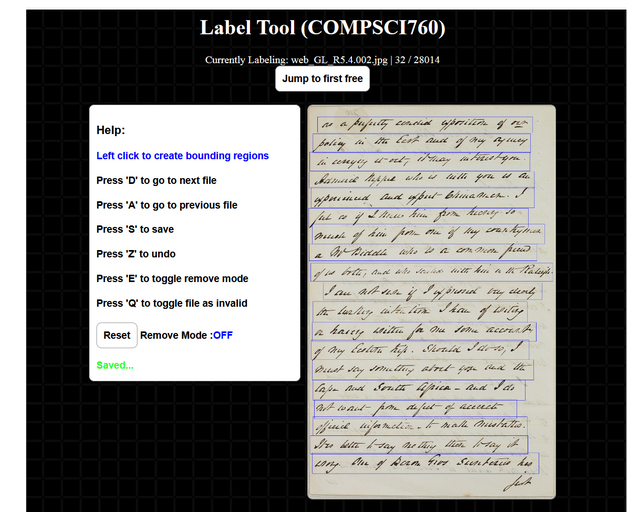 Label Tool (COMPSCI760)
Currently Labeling: web_GL_R5.4.002.jpg | 32 / 28014
Jump to first free
Help:
Left click to create bounding regions
Press 'D' to go to next file
Press 'A' to go to previous file
Press 'S' to save
Press 'Z' to undo
Press 'E' to toggle remove mode
Press 'Q' to toggle file as invalid
Reset Remove Mode :OFF
Saved...
as a perfectly candid exposition of our
policy in the East and of my agency
in carrying it out, it may interest you.
who is with you is an
experienced and expert Chinaman. I
feel as if I knew him from hearing so
much of him from one of my countrymen
a Mr who is a common friend
of us both, and who served with him in the
I am not sure if I expressed very clearly
the intention I have of writing
or having written for me some account
of my Eastern trip. Should I do so, I
must say something about you and the
Cape and South Africa - and I do
not want from defect of accurate
official information to make mistakes.
It is better to say nothing than to say it
wrong. One of has
just